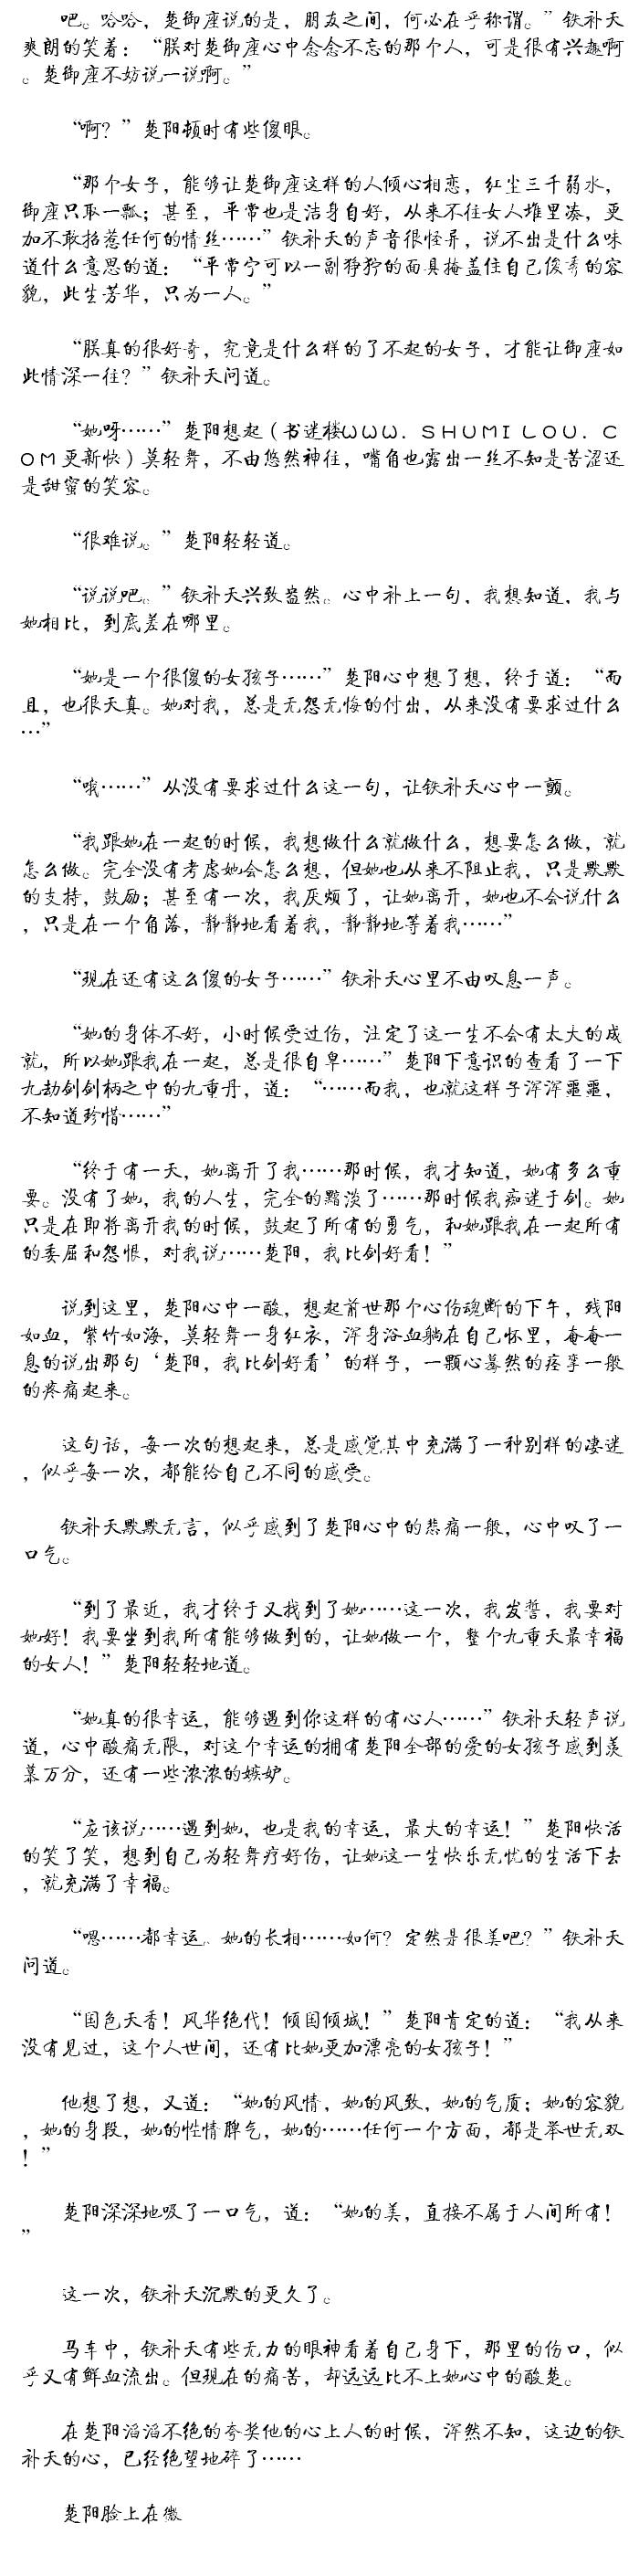 吧。哈哈，楚御座说的是，朋友之间，何必在乎称谓。”铁补天
爽朗的笑着：“朕对楚御座心中念念不忘的那个人，可是很有兴趣啊
。楚御座不妨说一说啊。”
“啊？”楚阳顿时有些傻眼。
“那个女子，能够让楚御座这样的人倾心相恋，红尘三千弱水，
御座只取一瓢；甚至，平常也是洁身自好，从来不往女人堆里凑，更
加不敢招惹任何的情丝……”铁补天的声音很怪异，说不出是什么味
道什么意思的道：“平常宁可以一副狰狞的面具掩盖住自己俊秀的容
貌，此生芳华，只为一人。”
“朕真的很好奇，究竟是什么样的了不起的女子，才能让御座如
此情深一往？”铁补天问道。
“她呀……”楚阳想起（书迷楼ＷＷＷ．ＳＨＵＭＩＬＯＵ．Ｃ
ＯＭ更新快）莫轻舞，不由悠然神往，嘴角也露出一丝不知是苦涩还
是甜蜜的笑容。
“很难说。”楚阳轻轻道。
“说说吧。”铁补天兴致盎然。心中补上一句，我想知道，我与
她相比，到底差在哪里。
“她是一个很傻的女孩子……”楚阳心中想了想，终于道：“而
且，也很天真。她对我，总是无怨无悔的付出，从来没有要求过什么
…”
“哦……”从没有要求过什么这一句，让铁补天心中一颤。
“我跟她在一起的时候，我想做什么就做什么，想要怎么做，就
怎么做。完全没有考虑她会怎么想，但她也从来不阻止我，只是默默
的支持，鼓励；甚至有一次，我厌烦了，让她离开，她也不会说什么
，只是在一个角落，静静地看着我，静静地等着我……”
“现在还有这么傻的女子……”铁补天心里不由叹息一声。
“她的身体不好，小时候受过伤，注定了这一生不会有太大的成
就，所以她跟我在一起，总是很自卑……”楚阳下意识的查看了一下
九劫剑剑柄之中的九重丹，道：“……而我，也就这样子浑浑噩噩，
不知道珍惜……”
“终于有一天，她离开了我……那时候，我才知道，她有多么重
要。没有了她，我的人生，完全的黯淡了……那时候我痴迷于剑。她
只是在即将离开我的时候，鼓起了所有的勇气，和她跟我在一起所有
的委屈和怨恨，对我说……楚阳，我比剑好看！”
说到这里，楚阳心中一酸，想起前世那个心伤魂断的下午，残阳
如血，紫竹如海，莫轻舞一身红衣，浑身浴血躺在自己怀里，奄奄一
息的说出那句‘楚阳，我比剑好看’的样子，一颗心蓦然的痉挛一般
的疼痛起来。
这句话，每一次的想起来，总是感觉其中充满了一种别样的凄迷
，似乎每一次，都能给自己不同的感受。
铁补天默默无言，似乎感到了楚阳心中的悲痛一般，心中叹了一
口气。
“到了最近，我才终于又找到了她……这一次，我发誓，我要对
她好！我要坐到我所有能够做到的，让她做一个，整个九重天最幸福
的女人！”楚阳轻轻地道。
“她真的很幸运，能够遇到你这样的有心人……”铁补天轻声说
道，心中酸痛无限，对这个幸运的拥有楚阳全部的爱的女孩子感到羡
慕万分，还有一些浓浓的嫉妒。
“应该说……遇到她，也是我的幸运，最大的幸运！”楚阳快活
的笑了笑，想到自己为轻舞疗好伤，让她这一生快乐无忧的生活下去
，就充满了幸福。
“嗯……都幸运。她的长相……如何？定然是很美吧？”铁补天
问道。
“国色天香！风华绝代！倾国倾城！”楚阳肯定的道：“我从来
没有见过，这个人世间，还有比她更加漂亮的女孩子！”
他想了想，又道：“她的风情，她的风致，她的气质；她的容貌
，她的身段，她的性情脾气，她的……任何一个方面，都是举世无双
！”
楚阳深深地吸了一口气，道：“她的美，直接不属于人间所有！
”
这一次，铁补天沉默的更久了。
马车中，铁补天有些无力的眼神看着自己身下，那里的伤口，似
乎又有鲜血流出。但现在的痛苦，却远远比不上她心中的酸楚。
在楚阳滔滔不绝的夸奖他的心上人的时候，浑然不知，这边的铁
补天的心，已经绝望地碎了……
楚阳脸上在微